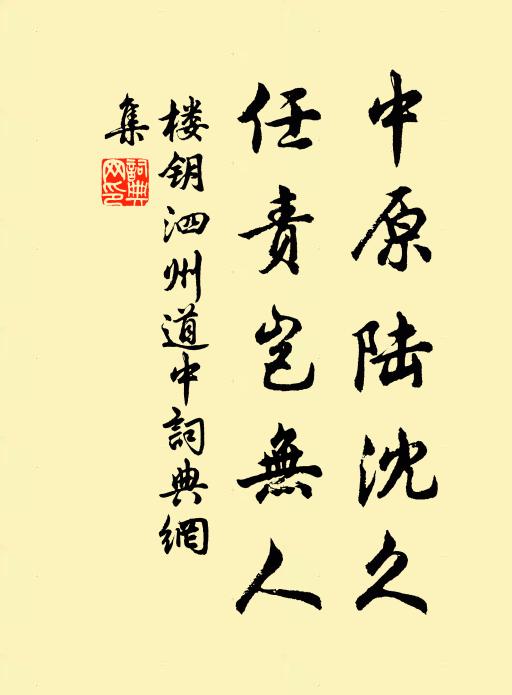 中原陆沈久
任责岂無人
楼钥泗州道中詞典網
集
詞典網印